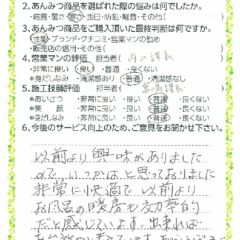 2.あんみつ商品を選ばれた際の悩みは何でしたか。
・結露・暑さ・寒さ・西日・防犯・騒音・その他(　　)
3.あんみつ商品をご購入頂いた最終判断は何ですか。
・ブランド・クチコミ・営業マンの勧め
・販売店の信用・その他(
4.営業マンの評価　担当者(
＊非常に良い・良い・普通・良くない
＊身だしなみ　清潔感あり・普通・清潔感なし
5.施工技師評価　担当者(
＊あいさつ　・非常に良い・良い・普通・良くない
＊笑顔　・非常に良い・良い・普通・良くない
＊身だしなみ・非常に良い・良い・普通・良くない
6.今後のサービス向上のため、ご意見をお聞かせ下さい。
以前より興味がありました
ので、いつかはと思っておりました
非常に快適で以前より
お風呂の暖房も効率的
だと感じています。出来れば